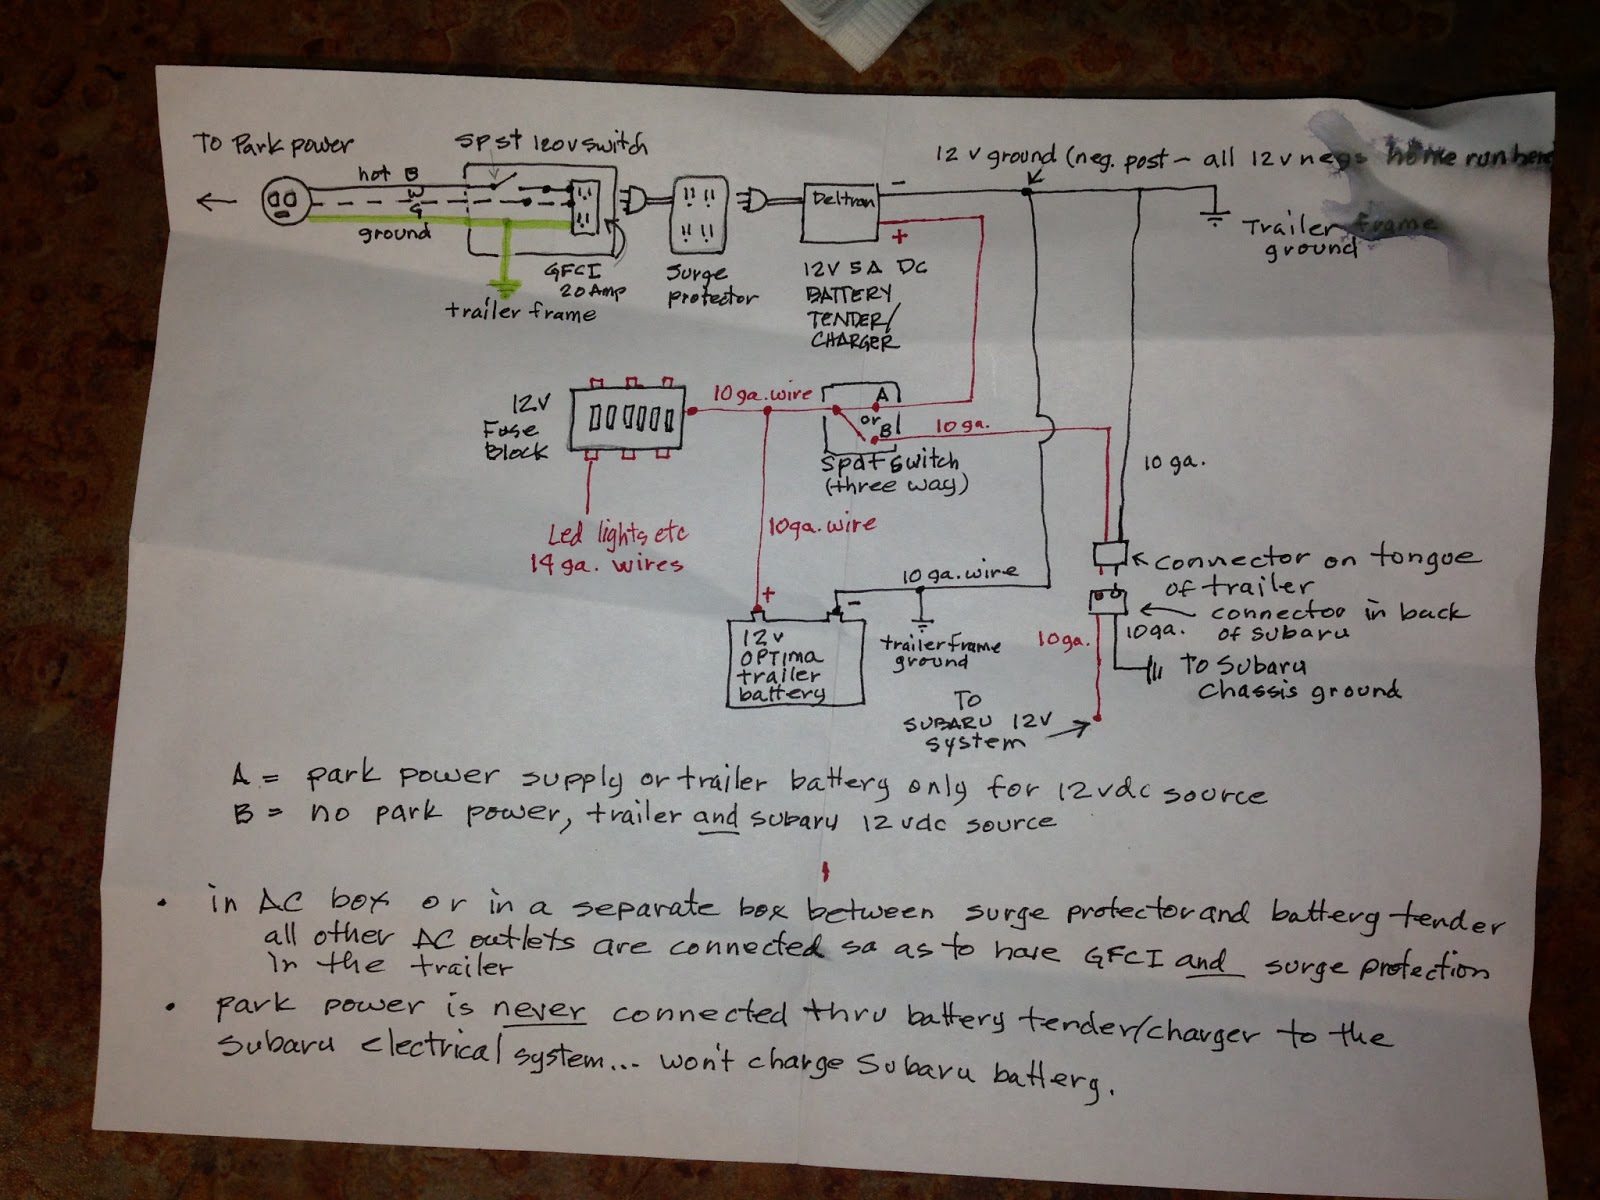 To Park power
spst 120v switch
hot B
W
G
ground
GFCI
20 Amp
trailer frame
Surge
protector
Deltran
-
+
12V 5A DC
BATTERY
TENDER/
CHARGER
12 v ground (neg. post - all 12v negs home run here
Trailer frame
ground
12V
Fuse
Block
10 ga. wire
A
or
B
10 ga.
spdt switch
(three way)
10 ga.
Led lights etc
14 ga. wires
10ga. wire
10 ga. wire
+
-
12v
OPTIMA
trailer
battery
trailer frame
ground
connector on tongue
of trailer
connector in back
of subaru
10ga.
10ga.
To Subaru
chassis ground
TO
SUBARU 12V
system
A = park power supply or trailer battery only for 12vdc source
B = no park power, trailer and subaru 12vdc source
• in AC box or in a separate box between surge protector and battery tender
all other AC outlets are connected so as to have GFCI and surge protection
in the trailer
• park power is never connected thru battery tender/charger to the
subaru electrical system... won't charge Subaru battery.